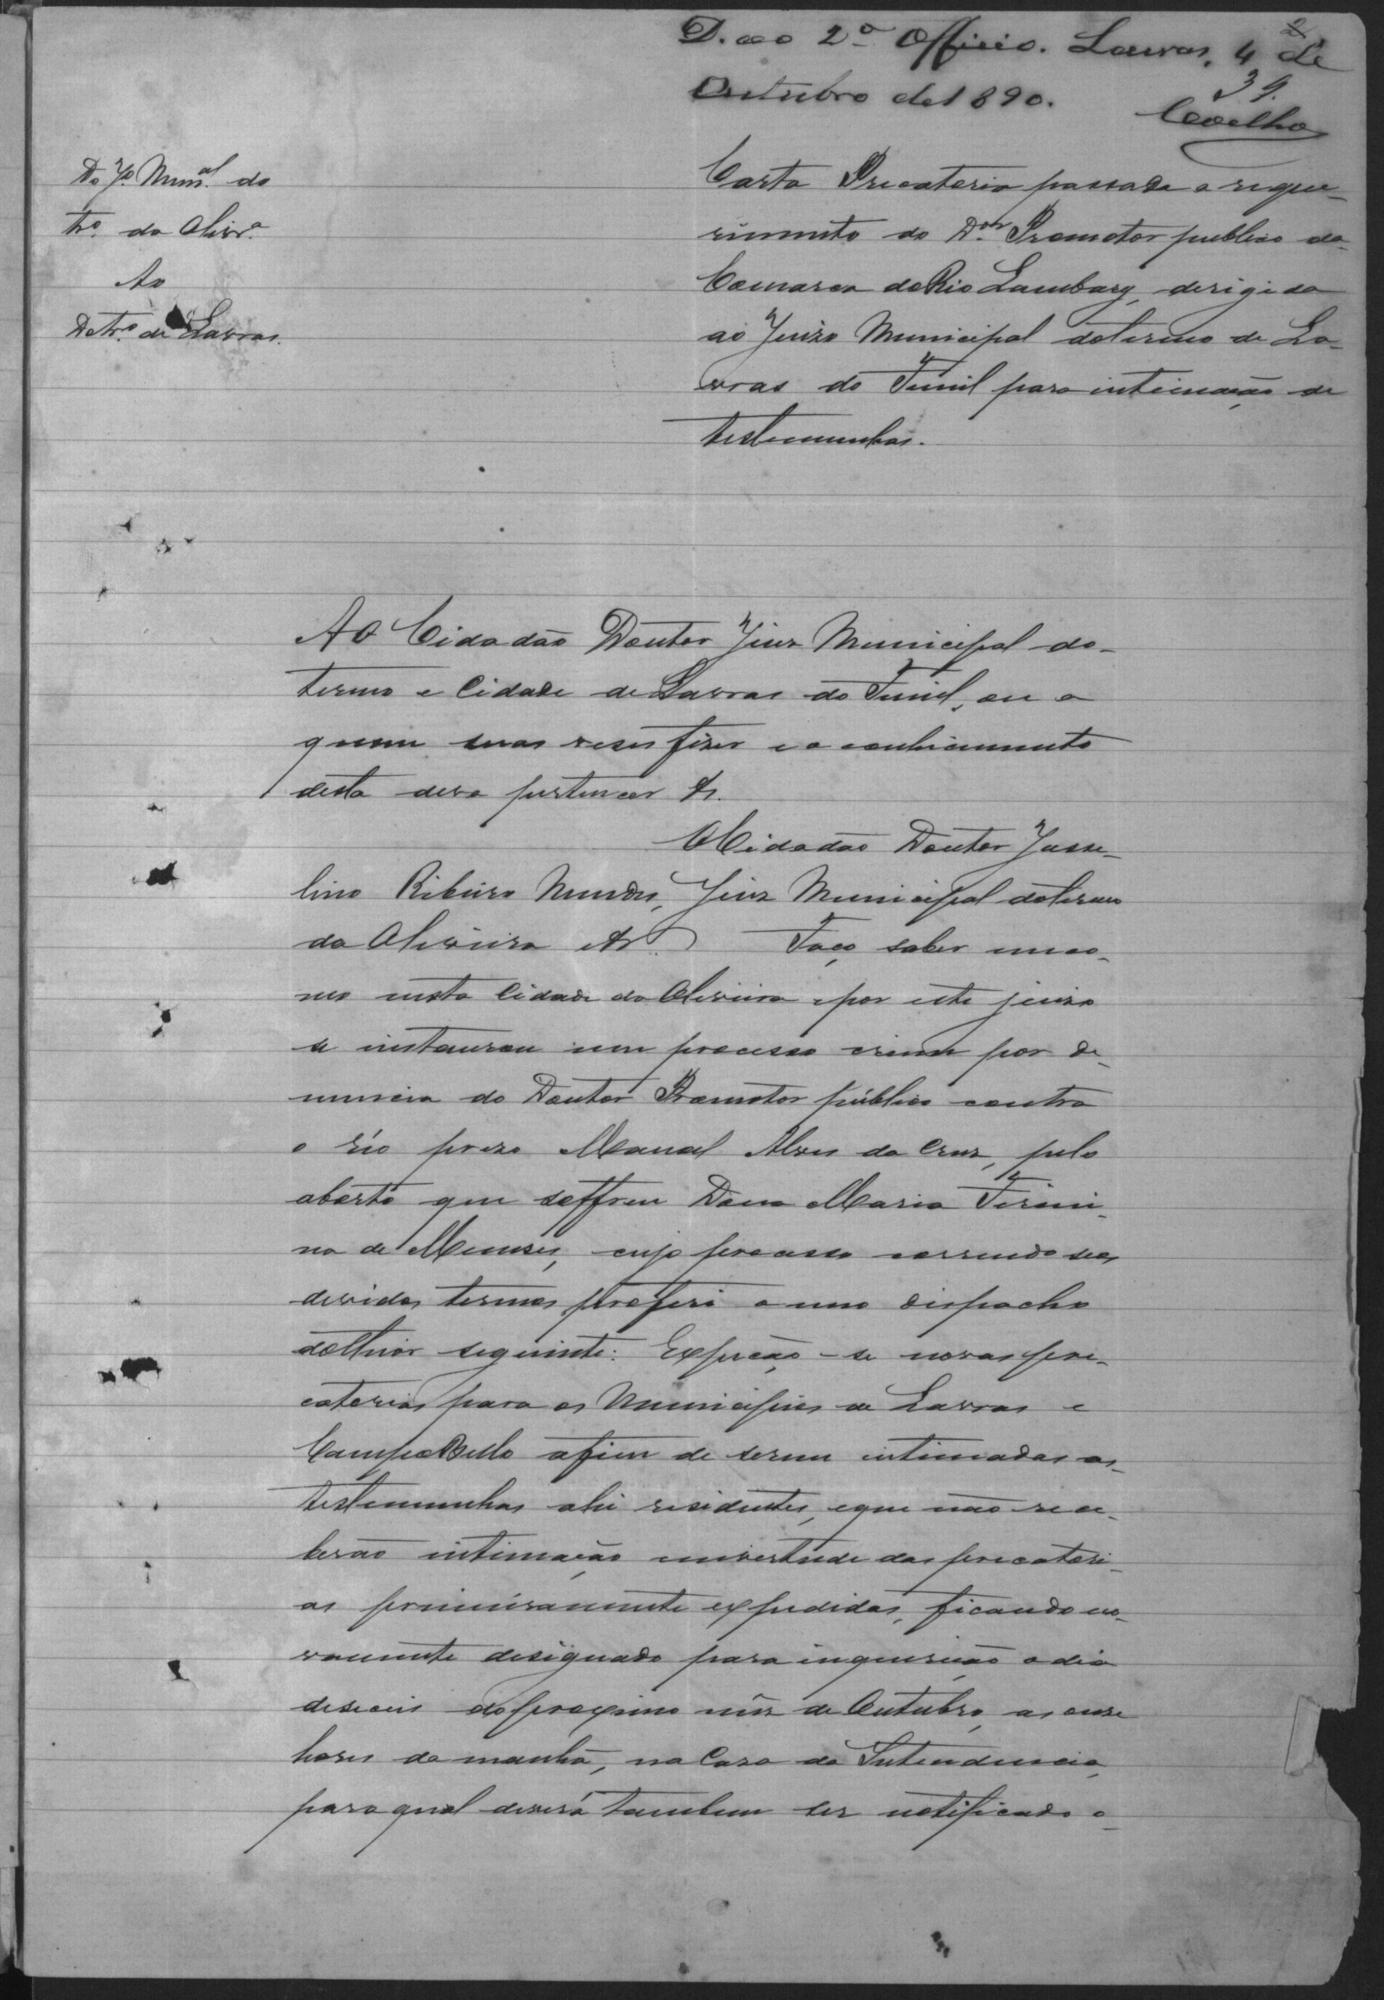 D. ao 2º Officio. Lavras, 4 de
Outubro de 1890.
39.
Coelho
Do Jº Munal. do
trº. da Olivrª.
Ao
Do trº de Lavras.
Carta Precatoria passada a reque-
rimento do Dor. Promotor publico da
Comarca do Rio Lambary, derigida
ao Juizo Municipal do termo de La-
vras do Funil para intimação de
testemunhas.
Ao Cidadão Doutor Juiz Municipal do
termo e Cidade de Lavras do Funil, ou a
quem suas veses fizer e o conhicimento
desta deva pertencer &.
O Cidadão Doutor Jusse-
lino Ribeiro Mendes, Juiz Municipal do termo
da Oliveira &
Faço saber que
nesta Cidade da Oliveira e por este juizo
se instaurou um processo crime por de-
nuncia do Doutor Promotor público contra
o réo prezo Manoel Alves da Cruz, pelo
aborto que soffreu Dona Maria Firmi-
na de Meneses, cujo processo correndo seos
devidos termos, proferi o meo dispacho
do theor seguinte: Expeção-se novas pre-
catorias para os Municipios de Lavras e
Campo Bello afim de serem intimadas as
testemunhas ahi residentes, e que não rece-
berão intimação em virtude das precatori-
as primeiramente expedidas, ficando no-
vamente designado para inquirição o dia
deseseis do proximo mêz de Outubro, as onze
horas da manhã, na Casa da Intendencia,
para qual deverá tambem ser notificado o